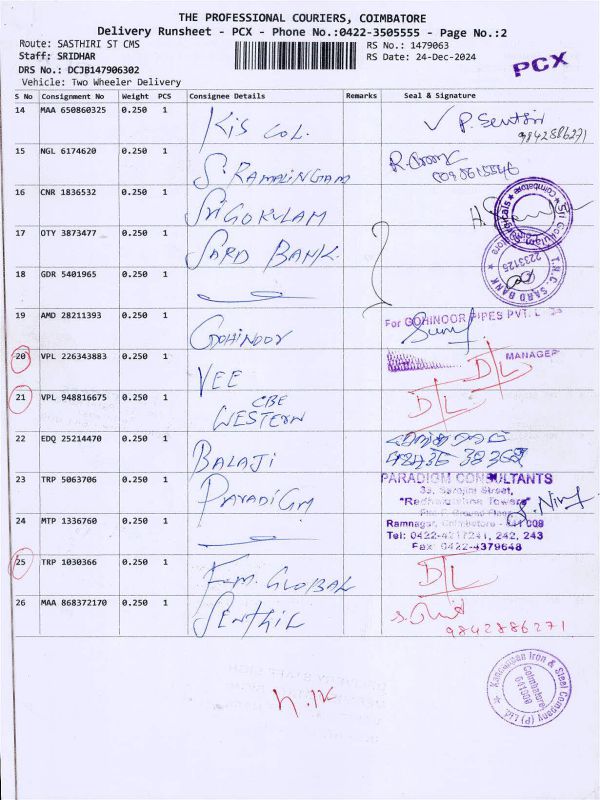 THE PROFESSIONAL COURIERS, COIMBATORE
Delivery Runsheet - PCX - Phone No.:0422-3505555 - Page No.:2
Route: SASTHIRI ST CMS
RS No.: 1479063
Staff: SRIDHAR
RS Date: 24-Dec-2024
DRS No.: DCJB147906302
PCX
Vehicle: Two Wheeler Delivery
S No Consignment No Weight PCS Consignee Details Remarks Seal & Signature
14 MAA 650860325 0.250 1 P. Senthil
9842886271
15 NGL 6174620 0.250 1 S. RAMALINGAM
16 CNR 1836532 0.250 1 SRI GOKULAM
17 OTY 3873477 0.250 1 SARD BANK
T.N.C. SARD BANK
2233125
18 GDR 5401965 0.250 1
19 AMD 28211393 0.250 1 GOHINOOR
For GOHINOOR PIPES PVT. L
20 VPL 226343883 0.250 1 VEE DL
MANAGER
21 VPL 948816675 0.250 1 CBE WESTERN DL
22 EDQ 25214470 0.250 1 BALAJI
23 TRP 5063706 0.250 1 PARADIGM
PARADIGM CONSULTANTS
24 MTP 1336760 0.250 1
Ramnagar, Coimbatore - 641 009
Tel: 0422-4217241, 242, 243
Fax: 0422-4379648
25 TRP 1030366 0.250 1 GLOBAL DL
26 MAA 868372170 0.250 1 SENTHIL
9842886271
Iron & Steel Company (P) Ltd.
Coimbatore